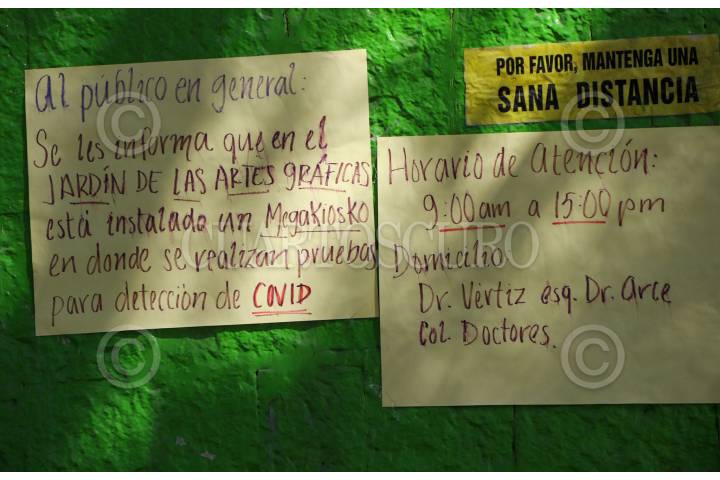 Al público en general:
Se les informa que en el
JARDÍN DE LAS ARTES GRÁFICAS
está instalado un Megakiosko
en donde se realizan pruebas
para detección de COVID
POR FAVOR, MANTENGA UNA
SANA DISTANCIA
Horario de Atención:
9:00 am a 15:00 pm
Domicilio
Dr. Vértiz esq. Dr. Arce
Col. Doctores.
CUARTOSCURO